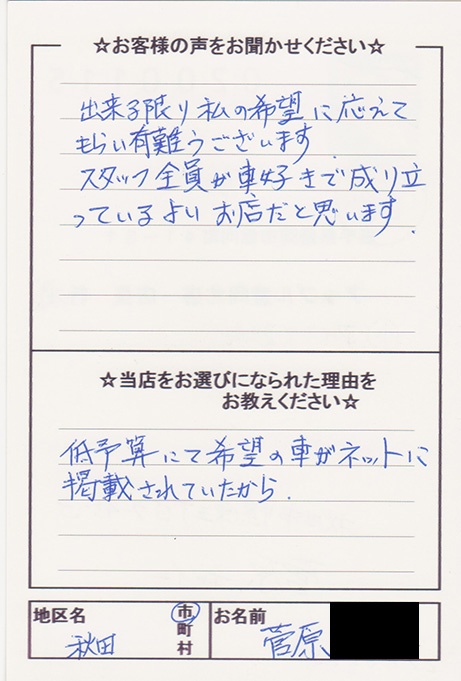 ☆お客様の声をお聞かせください☆
出来る限り私の希望に応えて
もらい有難うございます
スタッフ全員が車好きで成り立
っているよいお店だと思います.
☆当店をお選びになられた理由を
お教えください☆
低予算にて希望の車がネットに
掲載されていたから.
地区名 秋田 市町村 お名前 菅原